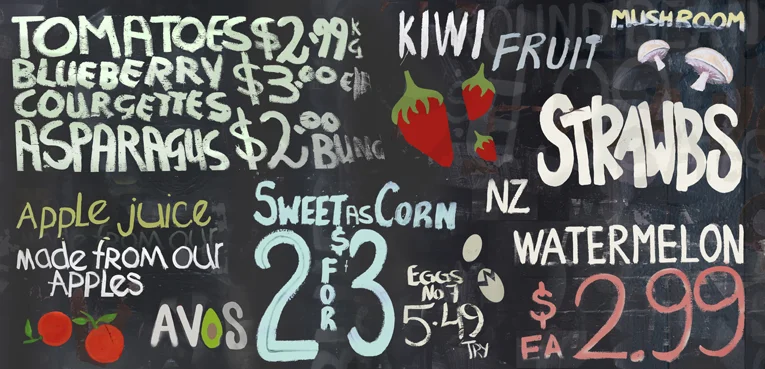 TOMATOES $2.99 KG
BLUEBERRY $3.00 EA
COURGETTES
ASPARAGUS $2.00 BUNG
KIWI FRUIT
MUSHROOM
STRAWBS
NZ
WATERMELON
$2.99
EA
Apple juice
made from our
Apples
AVOS
SWEET AS CORN
2 FOR $3
EGGS
No 7
5.49
TRY